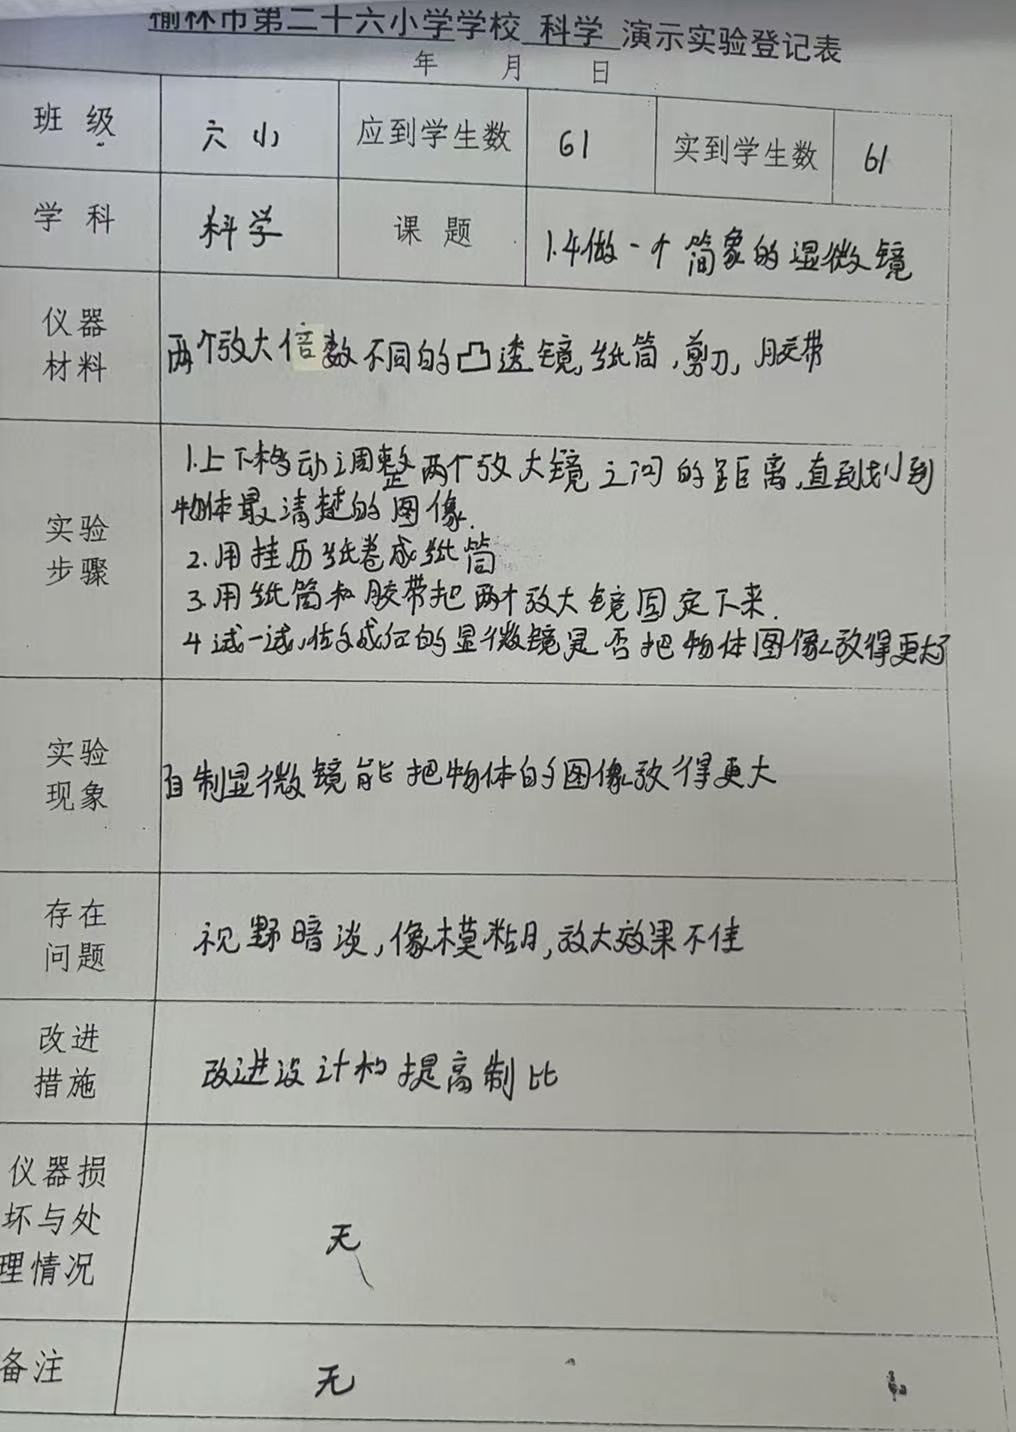 榆林市第二十六小学学校 科学 演示实验登记表
年 月 日
班 级 六小 应到学生数 61 实到学生数 61
学 科 科学 课 题 1.4做一个简象的显微镜
仪器 材料 两个放大倍数不同的凸透镜,纸筒,剪刀,胶带
实验 步骤
1.上下移动调整两个放大镜之间的距离,直到找到
物体最清楚的图像.
2.用挂历纸卷成纸筒
3.用纸筒和胶带把两个放大镜固定下来.
4试一试,做成的显微镜是否把物体图像放得更大了
实验 现象 自制显微镜能把物体的图像放得更大
存在 问题 视野暗淡,像模糊,放大效果不佳
改进 措施 改进设计 提高制比
仪器损
坏与处
理情况
无
备注 无